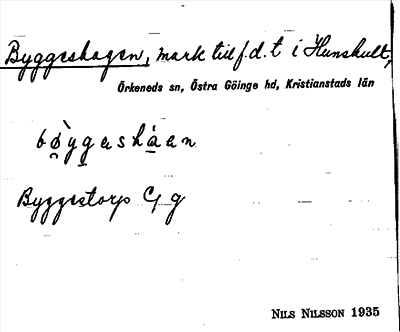 Byggeshagen, mark till f.d. t i Hunshult,
Örkeneds sn, Östra Göinge hd, Kristianstads län
bø̀ygashàan
Byggestorp G g
NILS NILSSON 1935